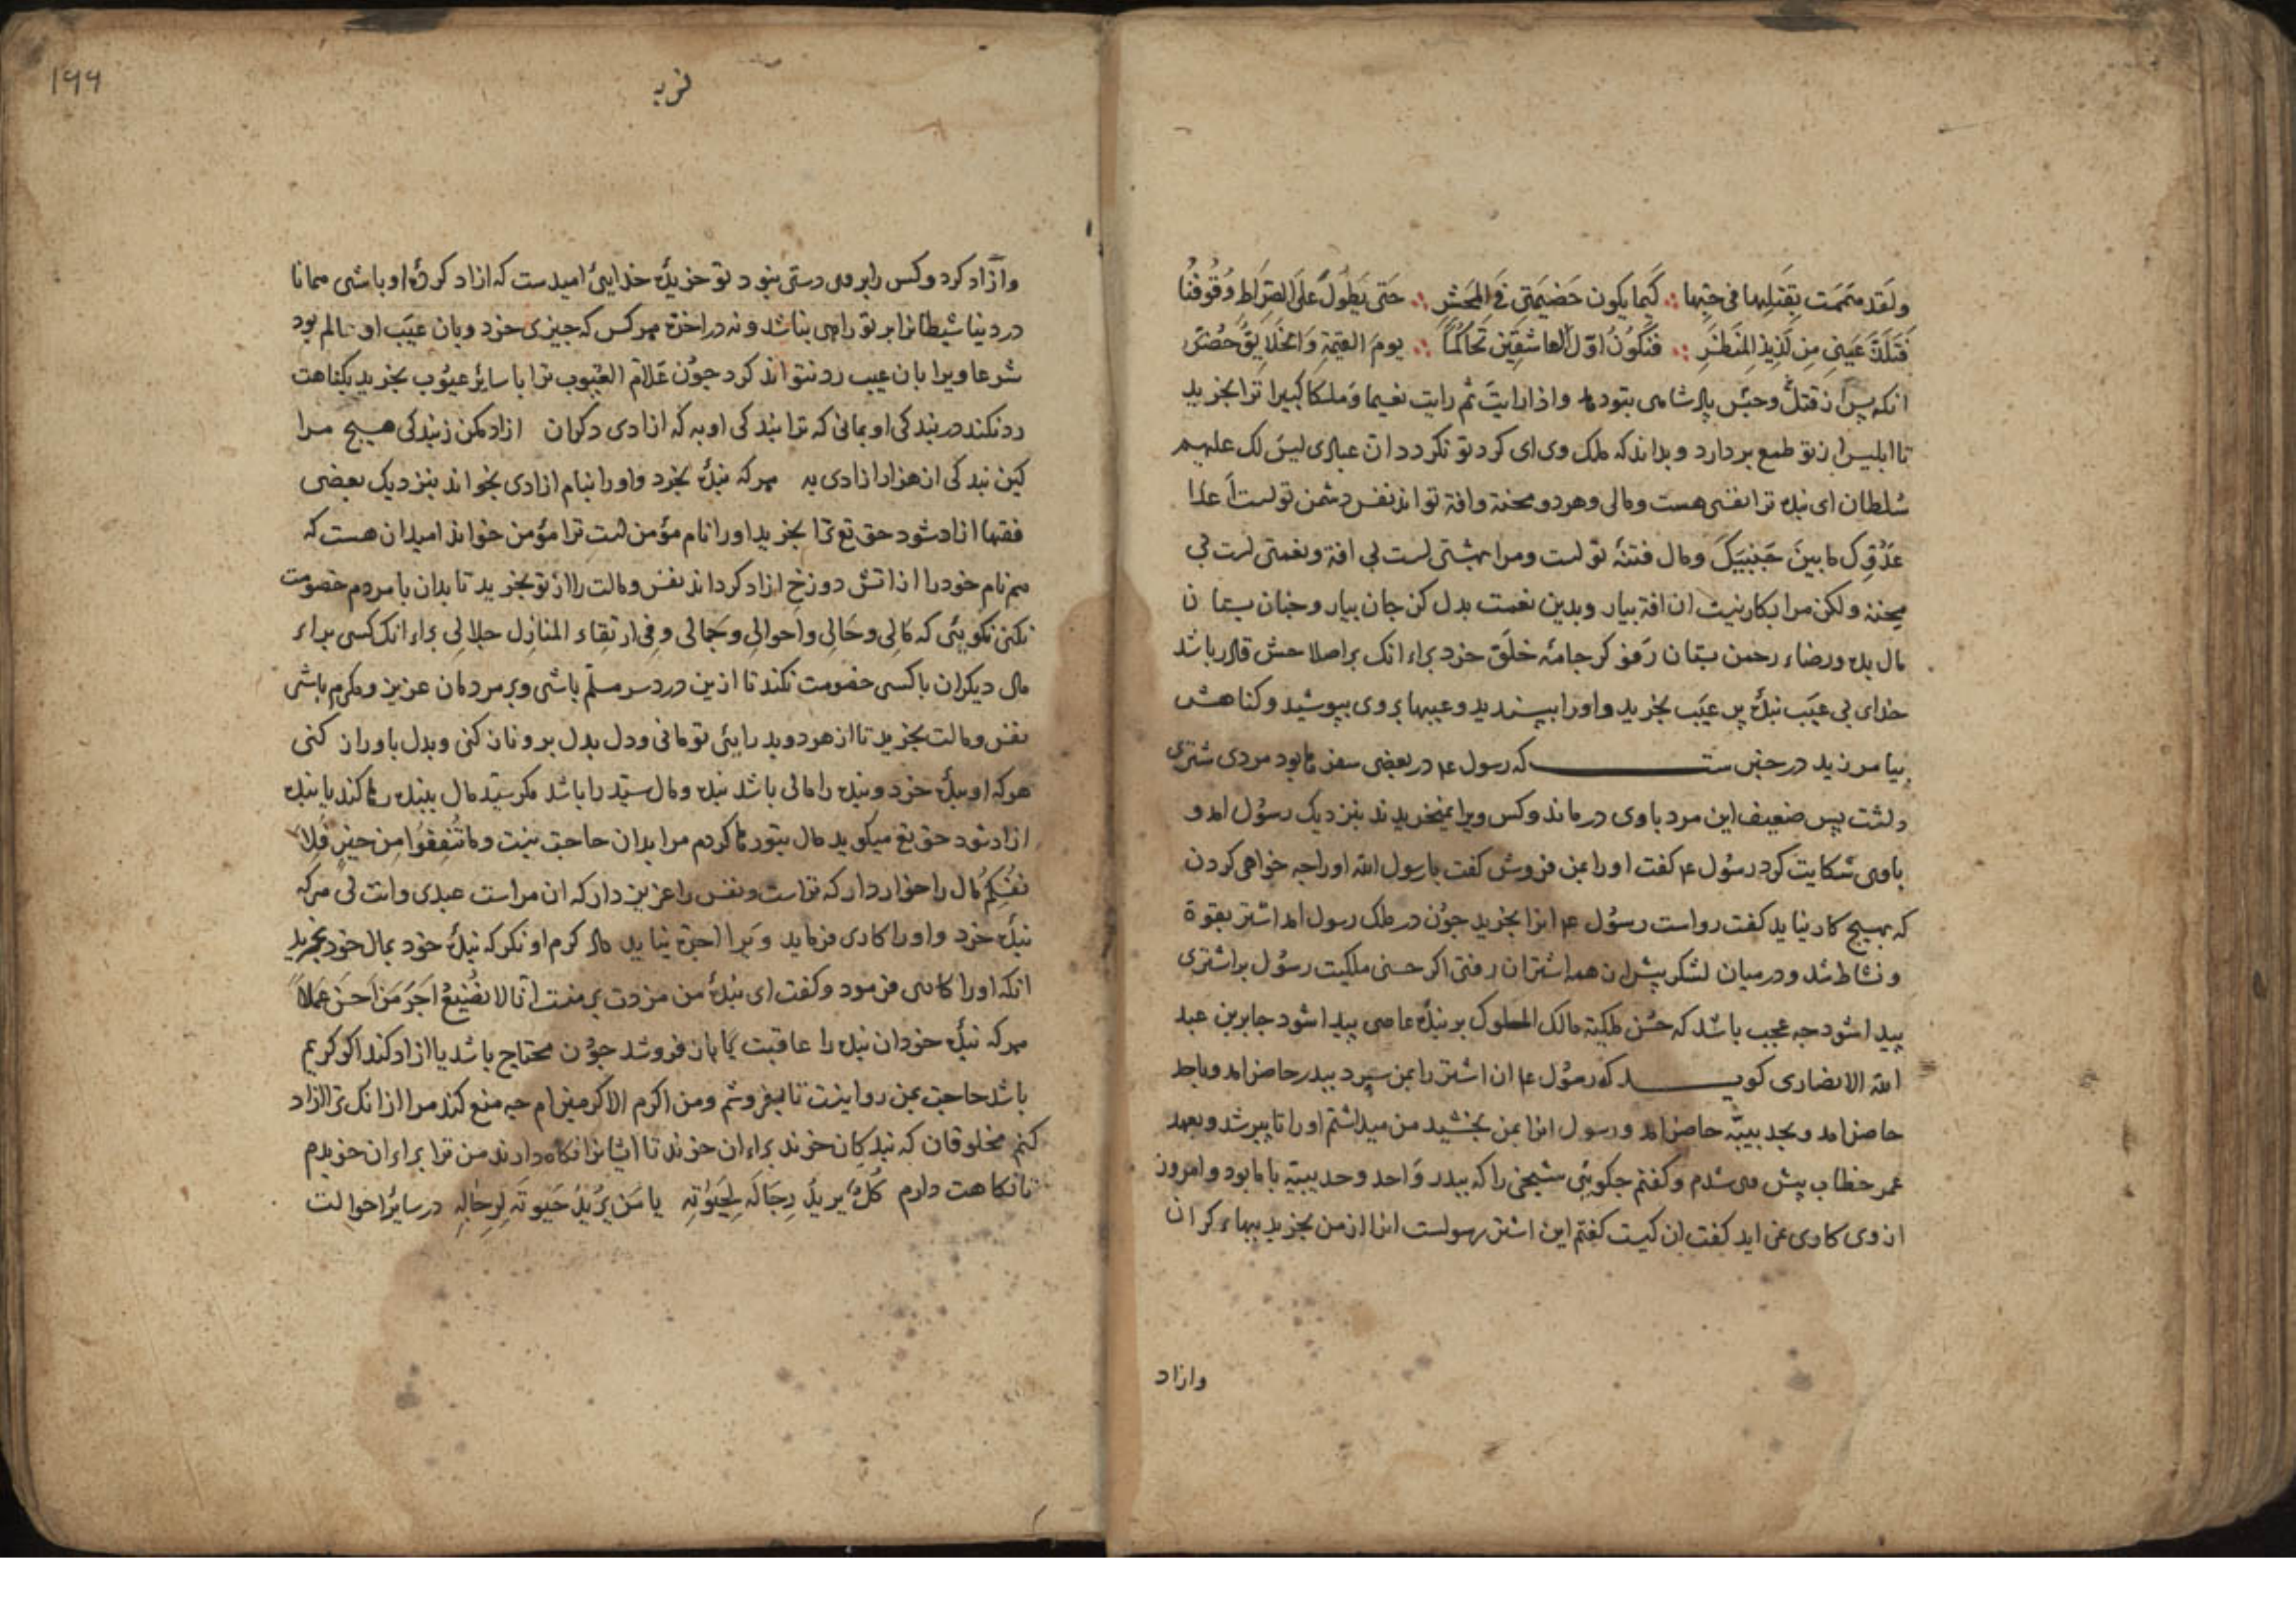 ولقد هممت بقتلها فی حبها ∴ کیما یکون خصیمتی فی المحشر ∴ حتی یطول علی الصراط وقوفنا
فتلذ عینی من لذیذ المنظر ∴ فنکون اول العاشقین تحاکما ∴ یوم القیمة والخلایق حضر
انکه پس از قتل وحبس پادشاهی بتو دهد واذا رایت ثم رایت نعیما وملکا کبیرا ترا بخرید
تا ابلیس از تو طمع بردارد وبداند که ملک وی ای کرد تو نکردد ان عبادی لیس لک علیهم
سلطان ای بنده ترا نفسی هست ومالی وهردو محنة وافة تواند نفس دشمن تولست اعدا
عدوک ما بین جنبیک ومال فتنهٔ تولست ومرا بهشتی لست بی افة ونعمتی لست بی
محنة ولکن مرا بکار نیست ان افة بیار وبدین نعمت بدل کن جان بیار وجنان بستان
مال بده ورضاء رحمن بستان رفو کر جامهٔ خلق خرد براء انک بر اصلاحش قادر باشد
خدای بی عیب بندهٔ پر عیب بخرید واورا بپسندید وعیبها بروی بپوشید وکناهش
بیامرزید در خبرست که رسول ع م در بعضی سفرها بود مردی شتری
داشت بس ضعیف این مرد باوی درماند وکس ویرا نمیخریدند بنزدیک رسول امد و
باوی شکایت کرد رسول ع م کفت اورا بمن فروش کفت یا رسول الله اورا چه خواهی کردن
که بهیچ کار نیاید کفت رواست رسول ع م انرا بخرید جون در ملک رسول امد اشتر بقوة
ونشاط شد ودرمیان لشکر پیش ان همه اشتران رفتی اکر حسن ملکیت رسول بر اشتری
پیدا شود چه عجب باشد که حسن ملکیة مالک الملوک بر بندهٔ عاصی پیدا شود جابر بن عبد
الله الانصاری کوید که رسول ع م ان اشتر را بمن سپرد ببدر حاضر امد وباحد
حاضر امد وبحدیبیه حاضر امد ورسول انرا بمن بخشید من میداشتم اورا تا پیر شد وبعهد
عمر خطاب پیش وی شدم وکفتم چکویی شیخی را که ببدر واحد وحدیبیة باما بود وامروز
از وی کاری نمی اید کفت ان کیست کفتم این اشتر رسولست انرا از من بخرید ببهاء کران
وازاد
۱۹۹
وآزاد کرد وکس را بر وی دستی نبود تو خریدهٔ خدایی امیدست که ازاد کردهٔ او باشی همانا
در دنیا شیطانرا بر تو راهی نباشد ونه در اخرة هرکس که چیزی خرد وبان عیب او عالم بود
شرعا ویرا بان عیب رد نتواند کرد چون علام الغیوب ترا با سایر عیوب بخرید بکناهت
رد نکند در بندکی او بمانی که ترا بندکی او به که ازادی دکران ازاد مکن زبندکی هیچ مرا
کین بندکی از هزار ازادی به هرکه بندهٔ بخرد واورا بنام ازادی بخواند بنزدیک بعضی
فقها ازاد شود حق تع ترا بخرید اورا نام مؤمن لست ترا مؤمن خواند امید ان هست که
هم نام خود را از اتش دوزخ ازاد کرداند نفس ومالت را از تو بخرید تا بدان با مردم خصومت
نکنی نکویی که مالی وحالی واحوالی وجمالی وفی ارتقاء المنازل جلالی براء انک کسی براء
مال دیکران با کسی خصومت نکند تا ازین دردسر مسلم باشی وبر مردمان عزیز ومکرم باشی
نفس ومالت بخرید تا از هردو بد رایی تو مانی ودل بدل برو نان کنی وبدل باوران کنی
هرکه او بندهٔ خرد وبنده را مالی باشد بنده ومال سید را باشد مکر سید مال ببنده رها کند یا بنده
ازاد شود حق تع میکوید مال بتو رها کردم مرا بدان حاجت نیست وما تنفقوا من خیر فلا
نفسکم مال را خوار دار که تراست ونفس را عزیز دار که ان مراست عبدی وانت لی هرکه
بندهٔ خرد واورا کاری فرماید ویرا اجرة نباید داد کرم او نکر که بندهٔ خود بمال خود بخرید
انکه اورا کاری فرمود وکفت ای بندهٔ من مزدت بر منست انا لا نضیع اجر من احسن عملا
هرکه بندهٔ خود ان بنده را عاقبت یا باز فروشد چون محتاج باشد یا ازاد کند اکر کریم
باشد حاجت بمن روا نیست تا بفروشم ومن اکرم الاکرمینم ام چه منع کند مرا از انک ترا ازاد
کنم مخلوقان که بندکان خرند براء ان خرند تا ایشانرا نکاه دارند من ترا براء ان خریدم
تا نکاهت دارم کل یرید رجاله لحیوته یا من یرید حیوته لرجاله در سایر احوالت